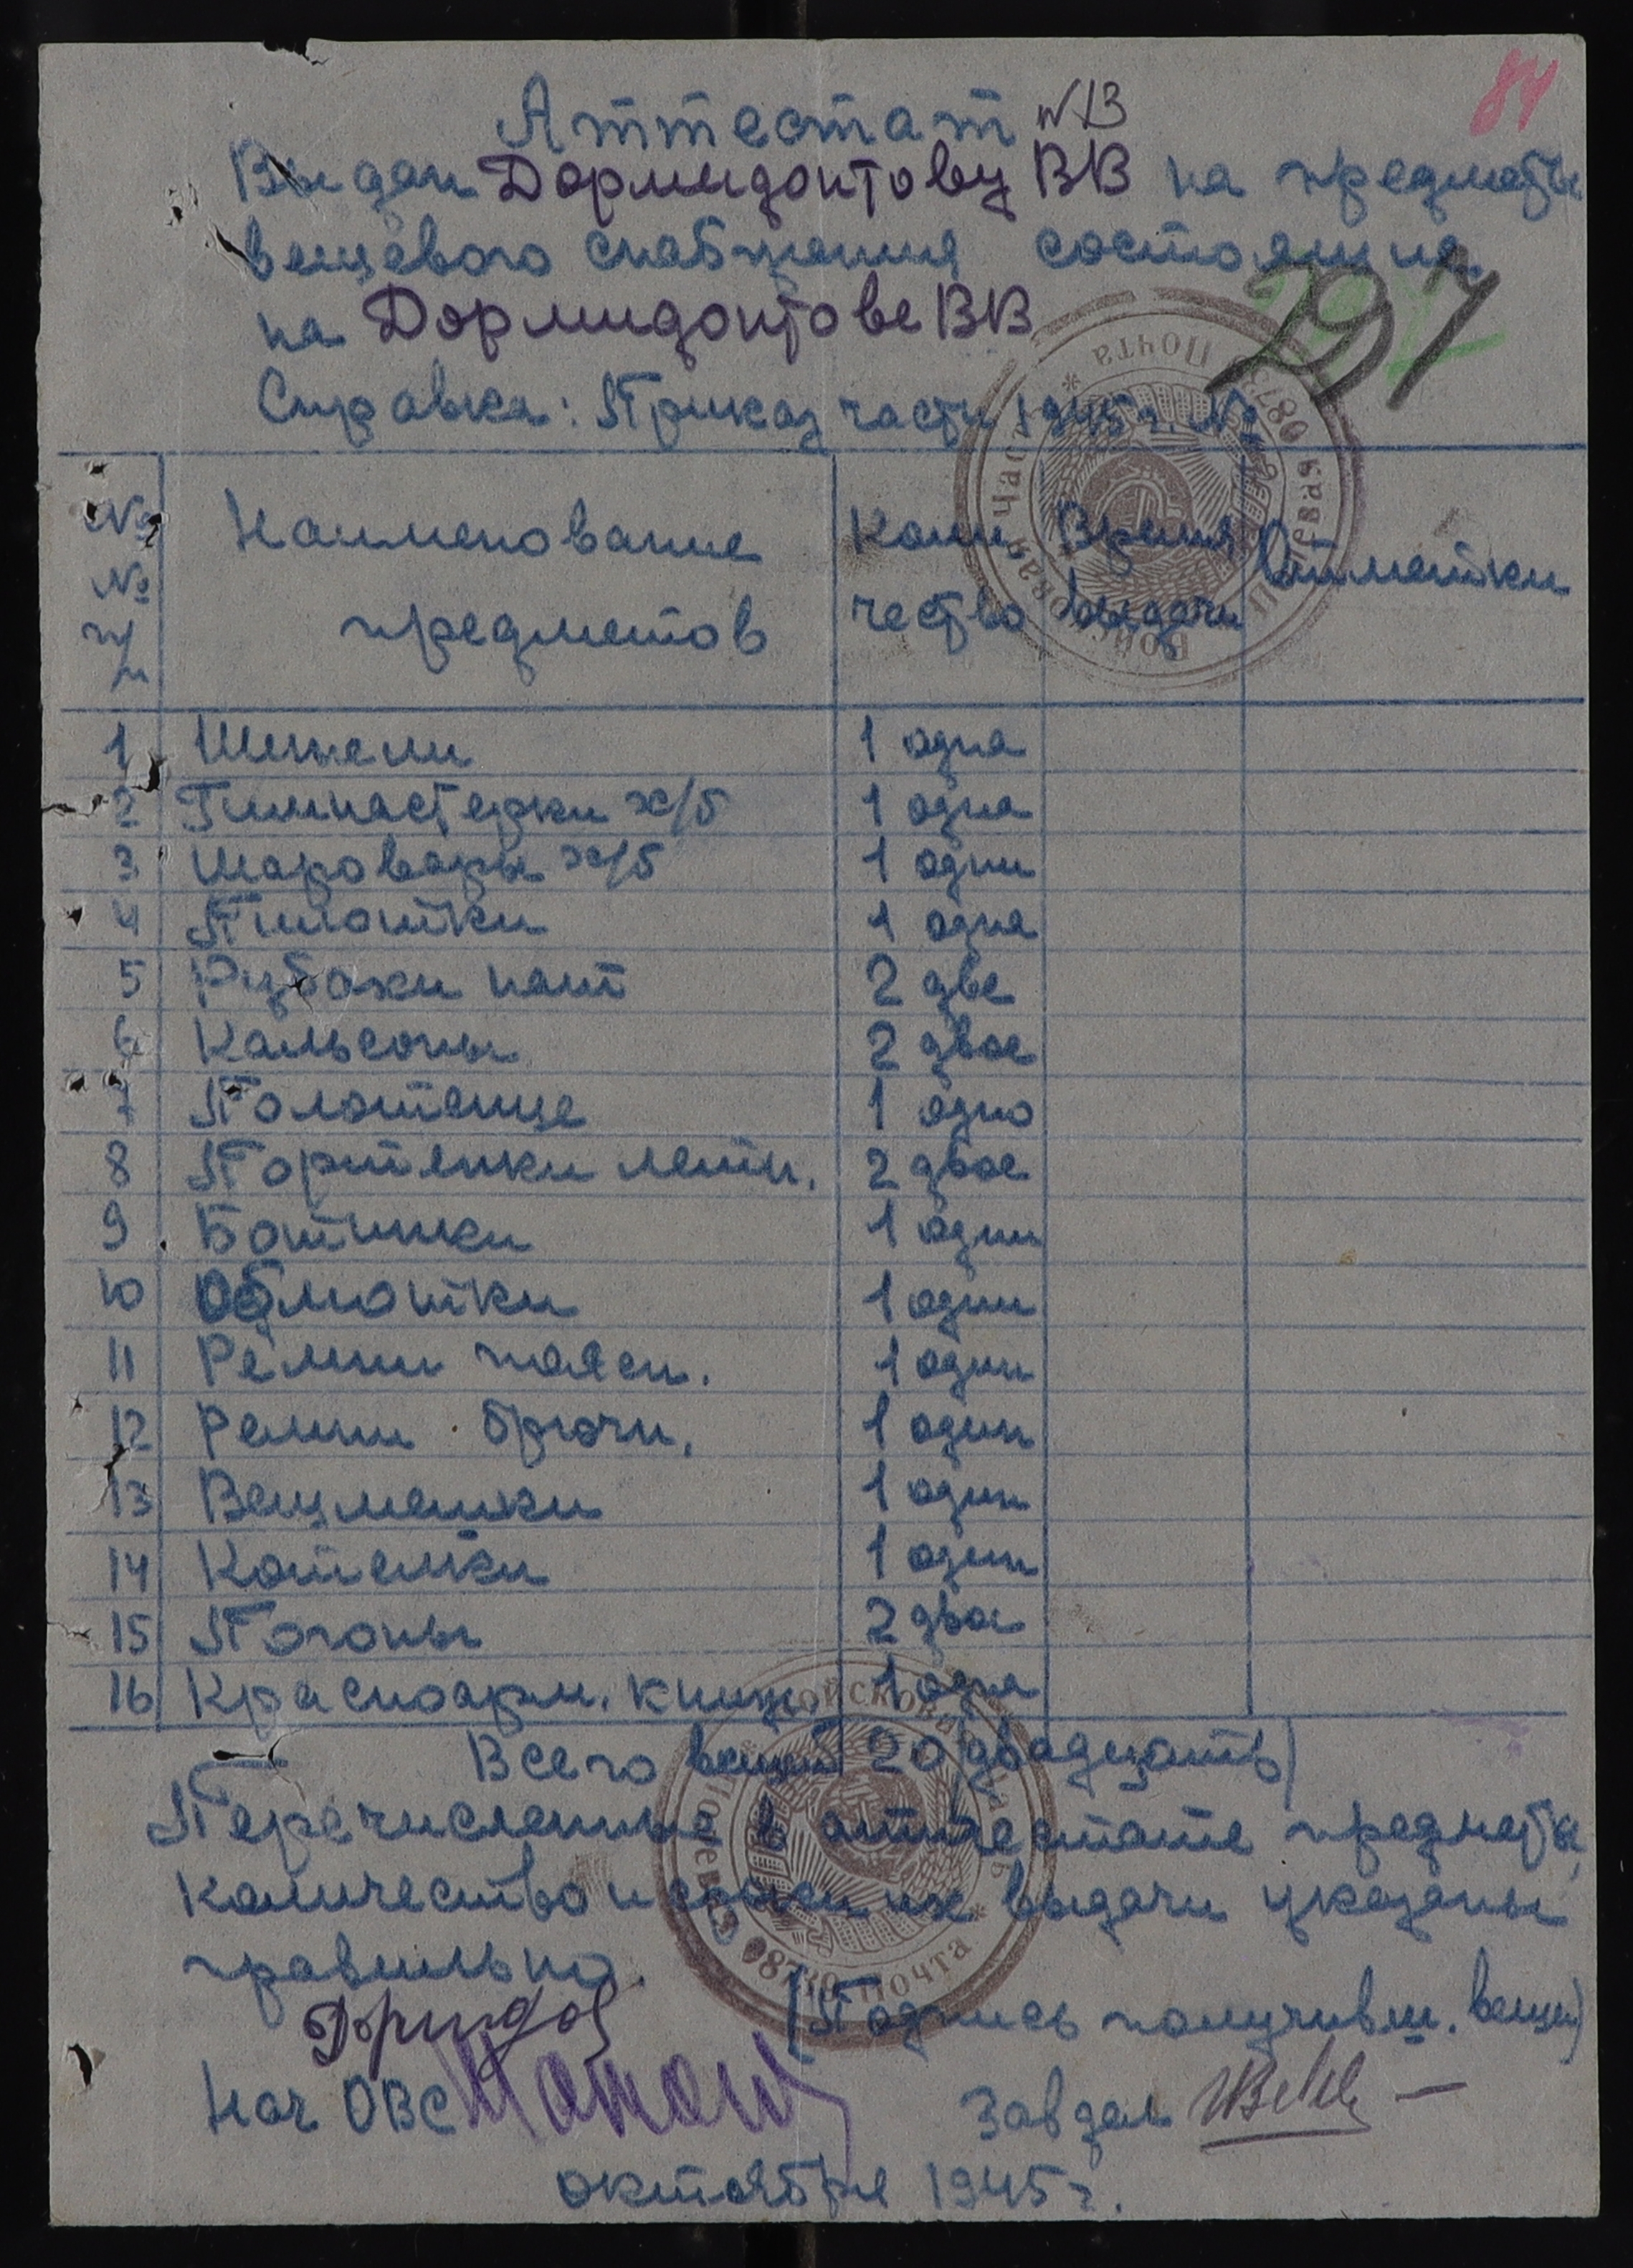 84
Аттестат №13
Выдан Дормидонтову ВВ на предметы
вещевого снабжения состоящие
на Дормидонтове ВВ
297
Справка: Приказ части 1945 г. №
№ № п/п Наименование предметов Коли чество Время выдачи Отметки
1 Шинели 1 одна
2 Гимнастерки х/б 1 одна
3 Шаровары х/б 1 одни
4 Пилотки 1 одна
5 Рубахи нат 2 две
6 Кальсоны 2 двое
7 Полотенце 1 одно
8 Портянки летн. 2 двое
9 Ботинки 1 одни
10 Обмотки 1 одни
11 Ремни поясн. 1 один
12 Ремни брючн. 1 один
13 Вещмешки 1 один
14 Котелки 1 один
15 Погоны 2 двое
16 Красноарм. книж 1 одна
Всего вещей 20 (двадцать)
Перечисленные в аттестате предметы,
количество и сроки их выдачи указаны
правильно.
(Подпись получивш. вещи)
Нач ОВС Завдел
октября 1945 г.
Войсковая Часть * Полевая Почта * 08730
Войсковая Часть * Полевая Почта * 08730